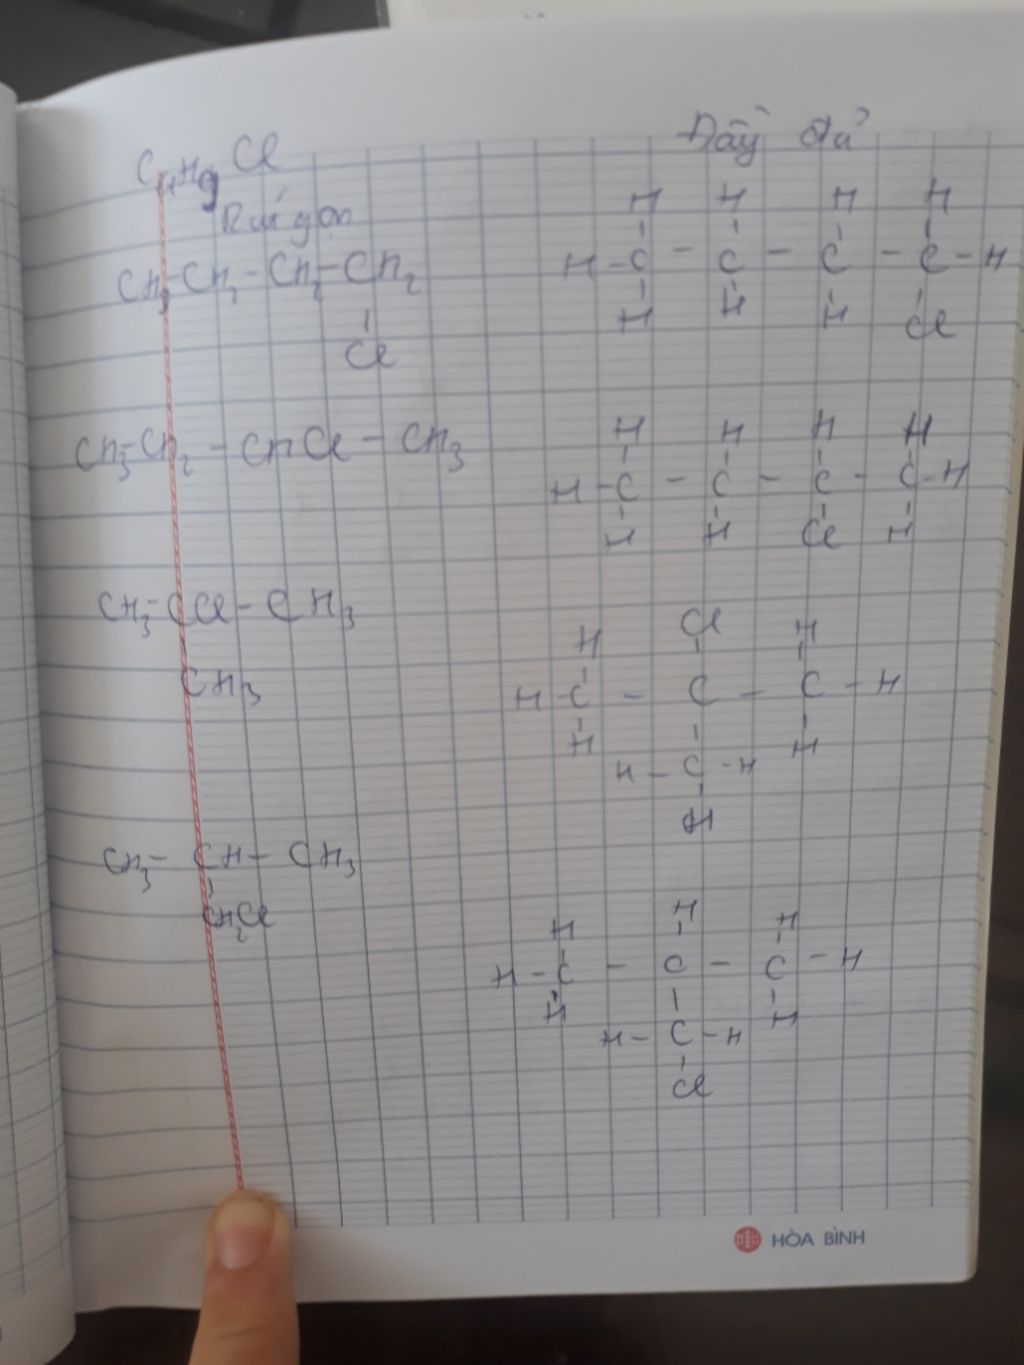 C4H9Cl
Rút gọn
Đầy đủ
CH3-CH2-CH2-CH2
Cl
H H H H
H-C-C-C-C-H
H H H Cl
CH3-CH2-CHCl-CH3
H H H H
H-C-C-C-C-H
H H Cl H
CH3-CCl-CH3
CH3
H Cl H
H-C-C-C-H
H H
H-C-H
H
CH3-CH-CH3
CH2Cl
H H H
H-C-C-C-H
H H
H-C-H
Cl
HÒA BÌNH